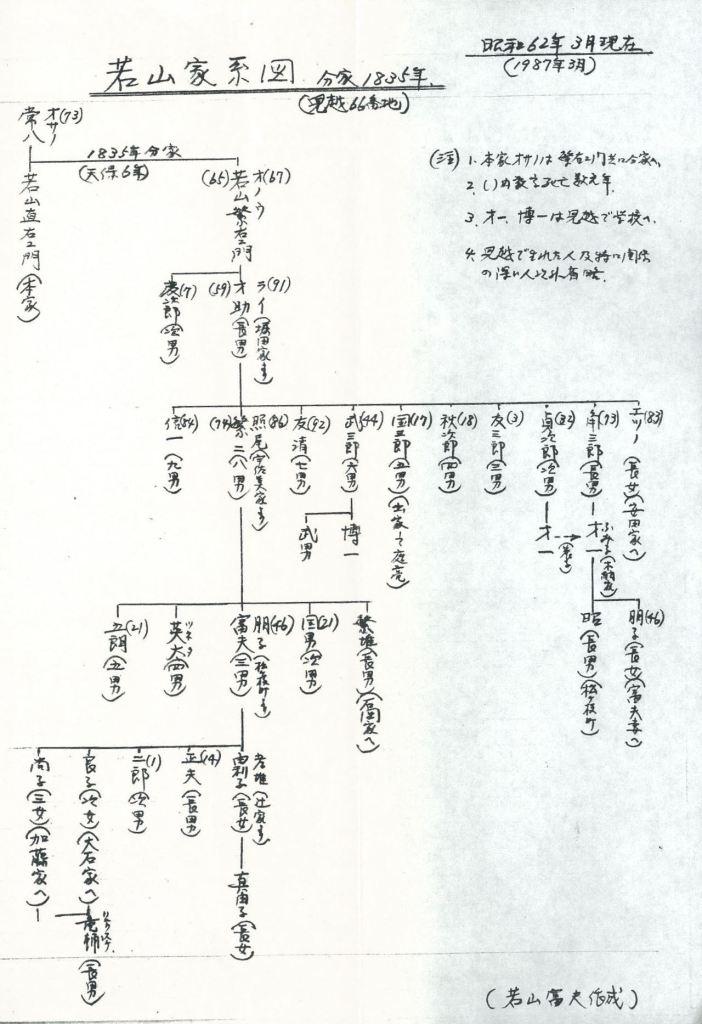 昭和62年3月現在
(1987年3月)
若山家系図 分家1835年
(見越66番地)
オサノ(73)
常八
若山直右エ門(本家)
1835年分家
(天保6年)
オノウ(67)
(65)若山繁右エ門
(注) 1. 本家オサノは繁右エ門と共に分家へ
2. ( )の数字は死亡数え年
3. 才一、博一は見越で学校へ
4. 見越で生れた人及特に関係
の深い人以外省略
ライ(91)(堀田家より)
(59)才助(長男)
(7)慶次郎(次男)
エツノ(83)(長女)(安田家へ)
角三郎(73)(長男)
才一
ふみよ
貞次郎(82)(次男)
才一
(養子)
友三郎(3)(三男)
秋次郎(18)(四男)
国三郎(17)(五男)
武三郎(44)(六男)
博一
武男
友清(92)(七男)
照尾(86)(宇佐美家より)
(74)繁二(八男)
信一(54)(九男)
朋子(46)(長女)(富夫妻)
昭(長男)(松ヶ枝町)
繁雄(長男)
国男(21)(次男)
朋子(46)(松ヶ枝町より)
富夫(三男)
英夫(四男)
五朗(21)(五男)
孝雄(辻家より)
由利子(長女)
真由子(長女)
正夫(14)(長男)
二郎(1)(次男)
良子(次女)(大石家へ)
竜輔(長男)
リュウスケ
尚子(三女)(加藤家へ)
(若山富夫作成)